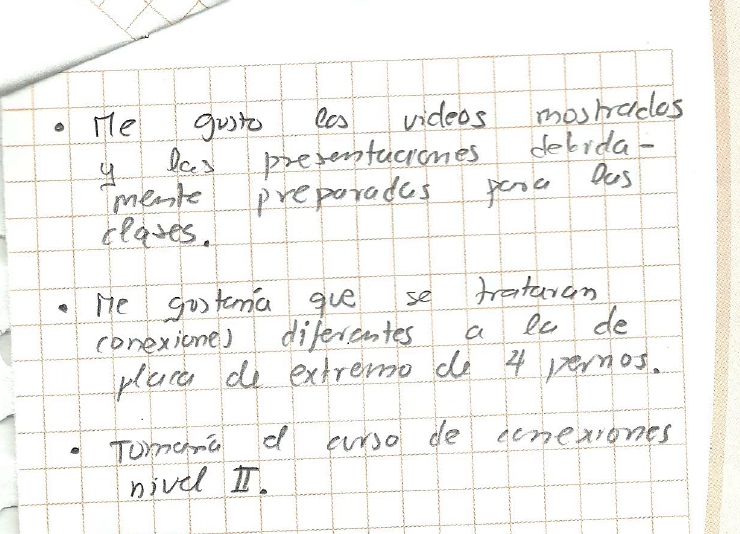 • Me gusto los videos mostrados
y las presentaciones debida-
mente preparadas para las
clases.
• Me gustaría que se trataran
conexiones diferentes a la de
placa de extremo de 4 pernos.
• Tomaría el curso de conexiones
nivel II.